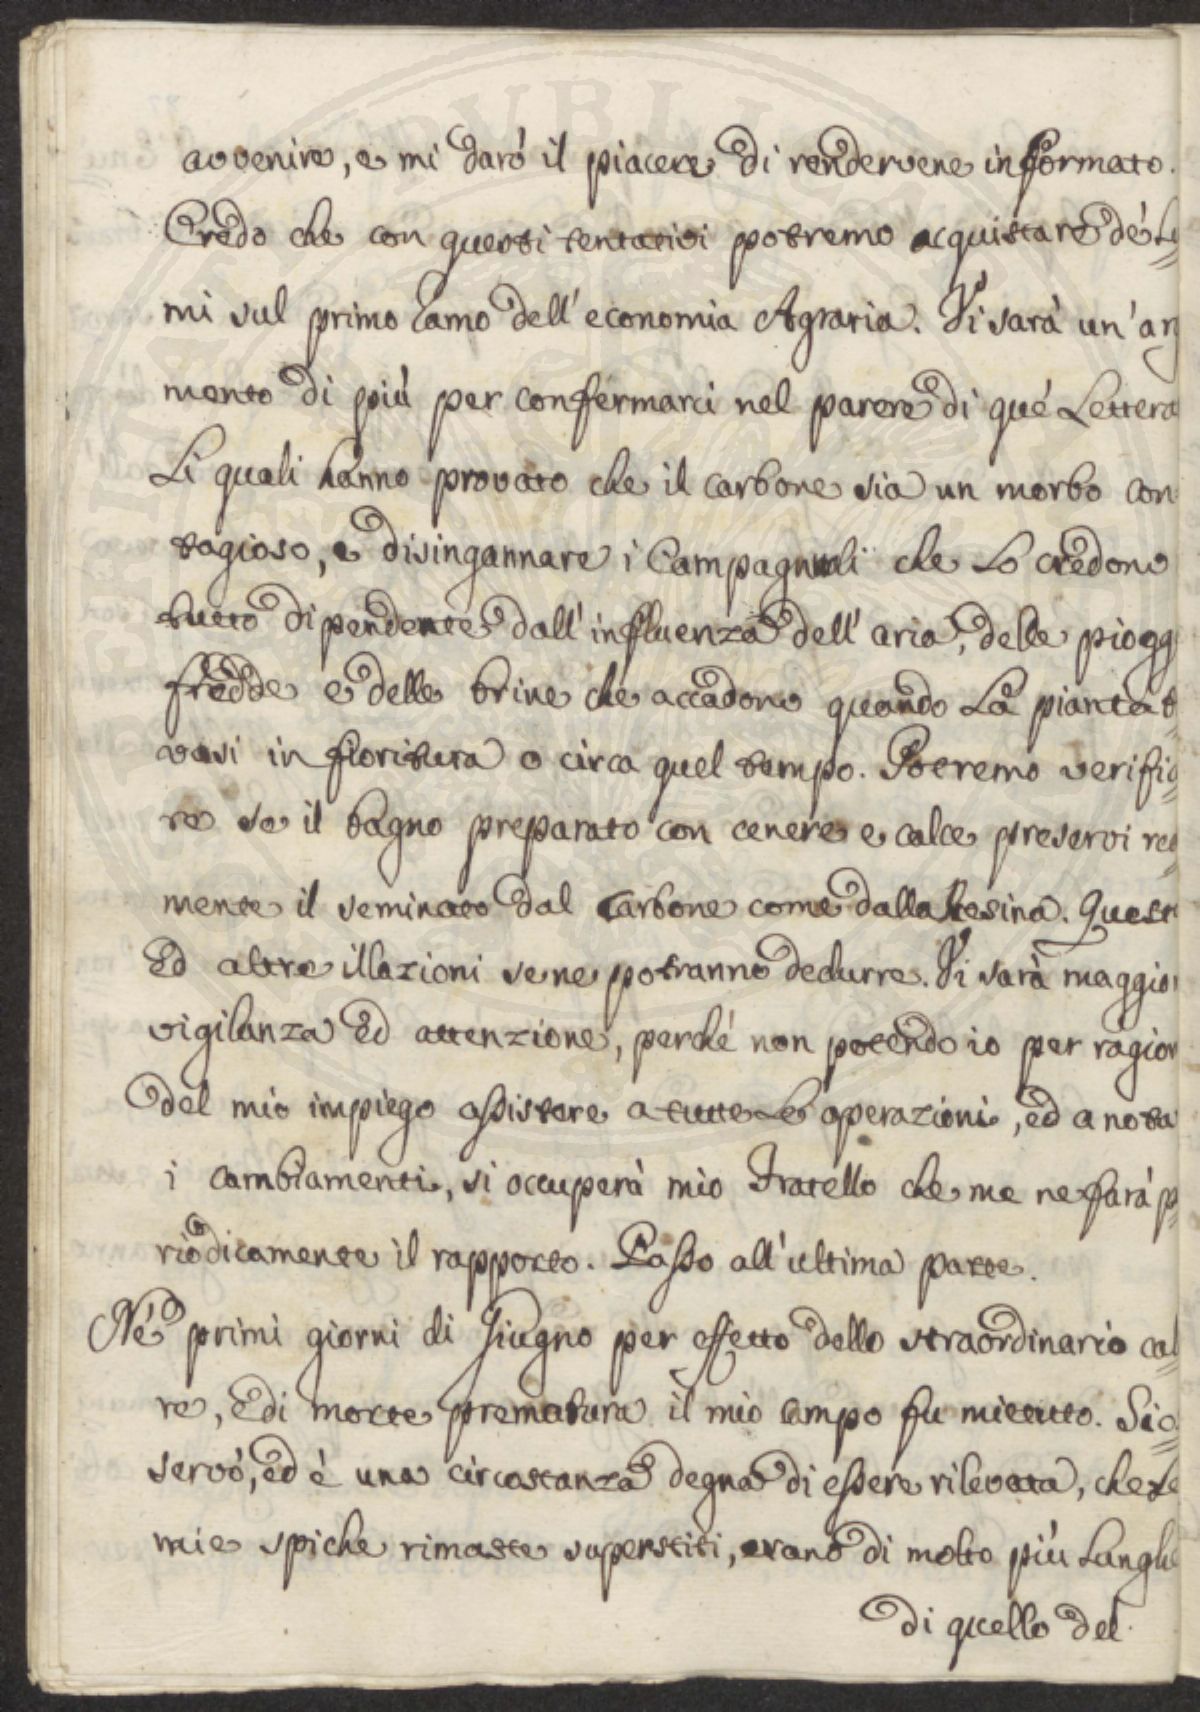 avvenire, e mi darò il piacere di rendervene informato.
Credo che con questi tentativi potremo acquistare dé Lu=
mi sul primo ramo dell'economia Agraria. Vi sarà un'ar
mento di più per confermarci nel parere di qué Lettera
Li quali hanno provato che il carbone sia un morbo con
tagioso, e disingannare i Campagnuoli che Lo credono
tutto dipendente dall'influenza dell'aria, delle piogg
fredde e delle brine che accadono quando La pianta t
vasi in fioritura o circa quel tempo. Potremo verifica=
re se il bagno preparato con cenere e calce preservi rea=
mente il seminato dal Carbone come dalla Resina. Quest
Ed altre illazioni se ne potranno dedurre. Vi sarà maggior
vigilanza Ed attenzione, perché non potendo io per ragion
del mio impiego assistere a tutte Le operazioni, ed a nota
i cambiamenti, si occuperà mio Fratello che me ne farà p=
riodicamente il rapporto. Passo all'ultima parte.
Né primi giorni di Giugno per effetto dello straordinario cal
re, E di morte prematura il mio campo fu mietuto. Si o=
servò, ed è una circostanza degna di essere rilevata, che Le
mie spiche rimaste superstiti, erano di molto più Lunghe
di quello del